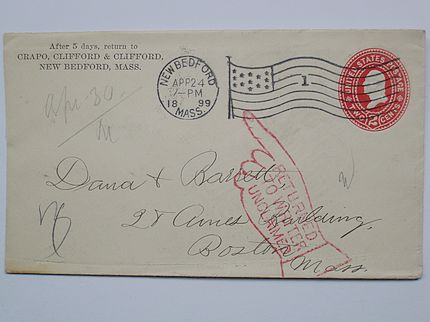 After 5 days, return to
CRAPO, CLIFFORD & CLIFFORD,
NEW BEDFORD, MASS.
NEW BEDFORD
APR 24
-PM
18 99
MASS.
1
UNITED STATES POSTAGE
TWO 2 CENTS
Apr. 30
RETURNED
TO WRITER
UNCLAIMED
Dana & Barrett,
28 Ames Building,
Boston
Mass.